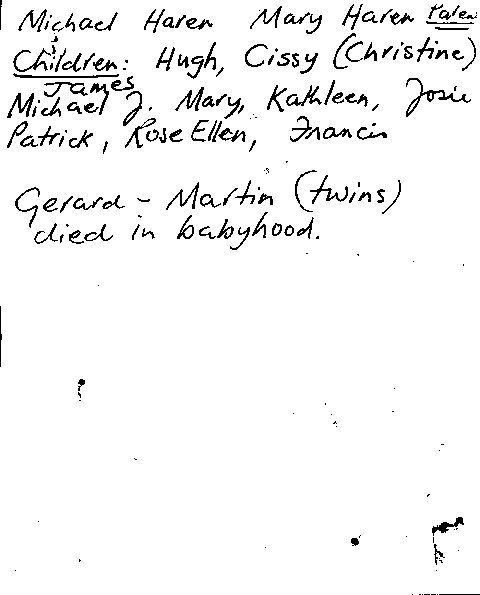 Michael Haren Mary Haren Paren
Children: Hugh, Cissy (Christine)
James
Michael J. Mary, Kathleen, Josie
Patrick, Rose Ellen, Francis
Gerard - Martin (twins)
died in babyhood.